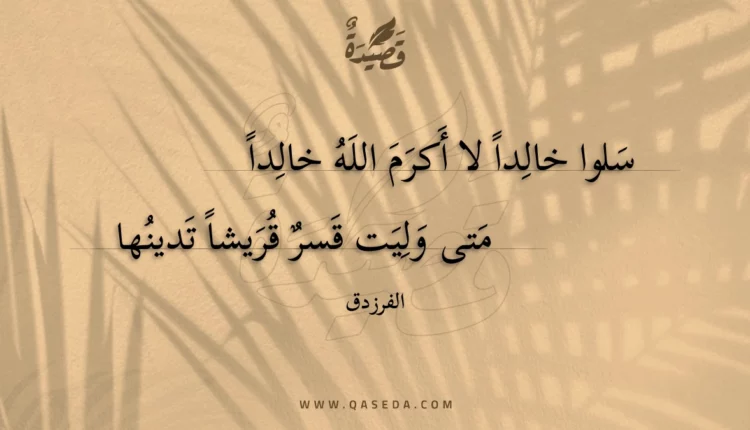 قَصِيدَةٌ
سَلوا خالِداً لا أَكرَمَ اللَهُ خالِداً
مَتى وَلِيَت قَسرٌ قُرَيشاً تَدينُها
الفرزدق
WWW.QASEDA.COM